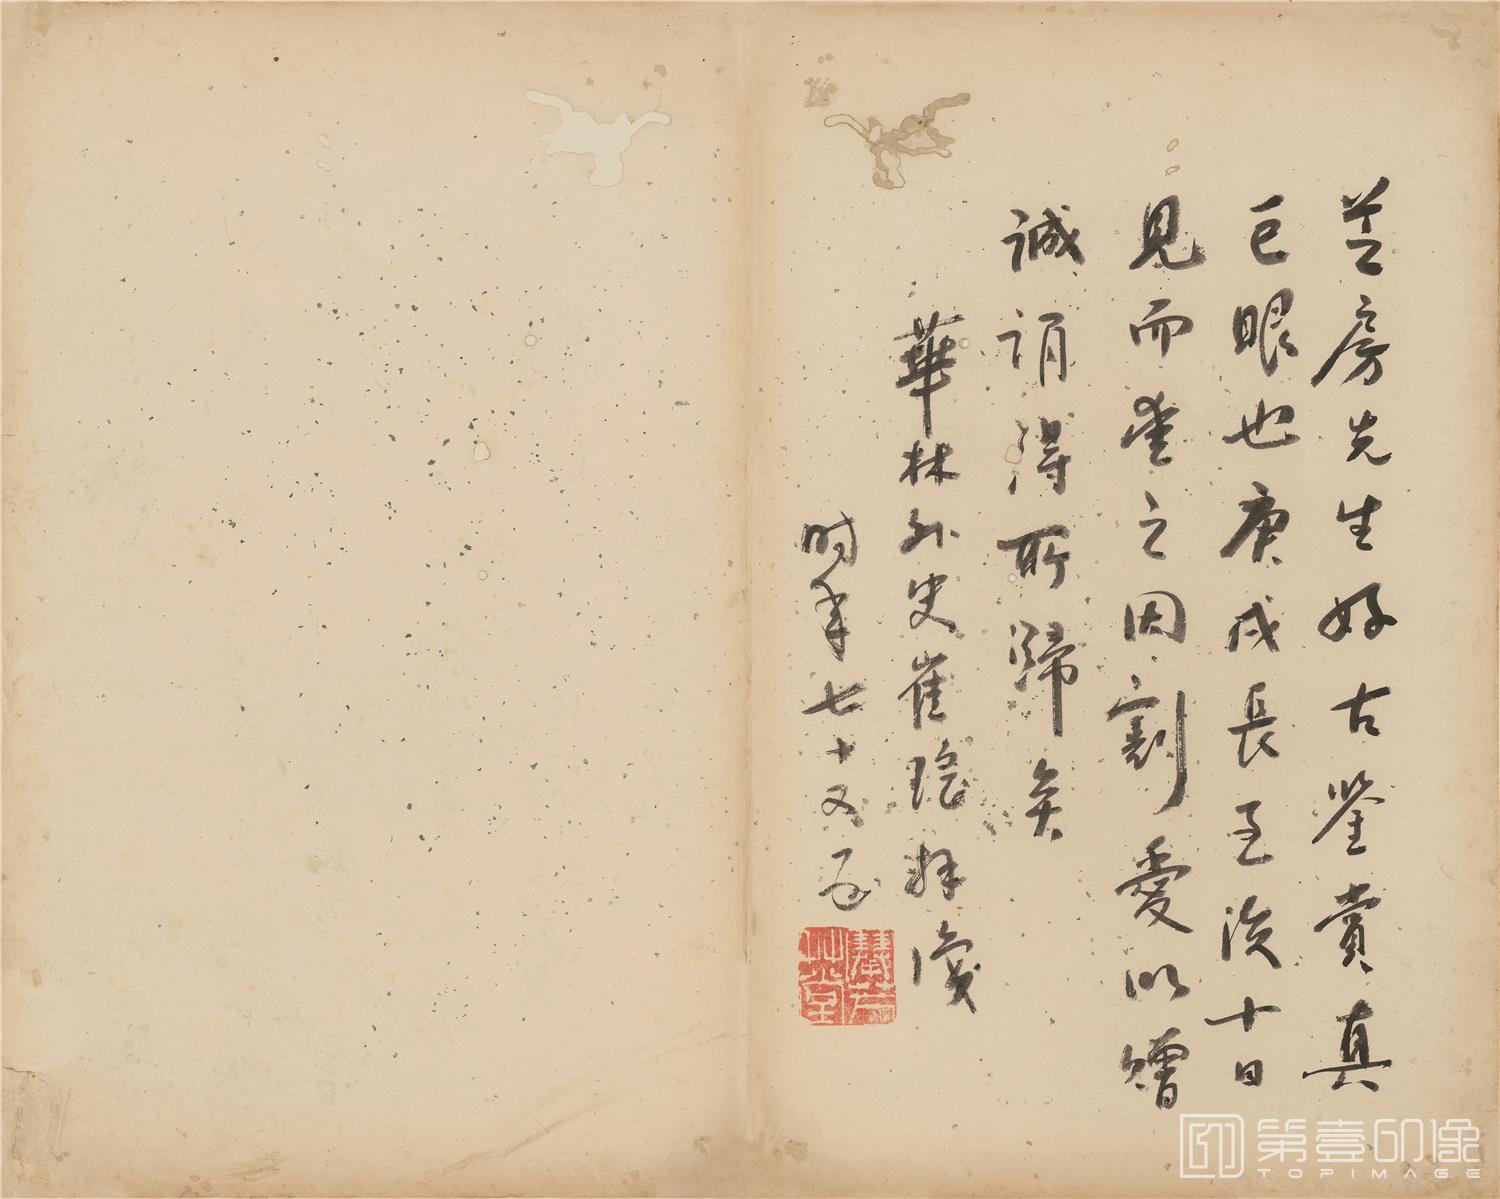 芝房先生好古鑒賞真
巨眼也庚戌長至後十日
見而愛之因割愛以贈
誠謂得所歸矣
華林外史崔瑤拜識
时年七十又五
草堂
第壹印像
TOPIMAGE